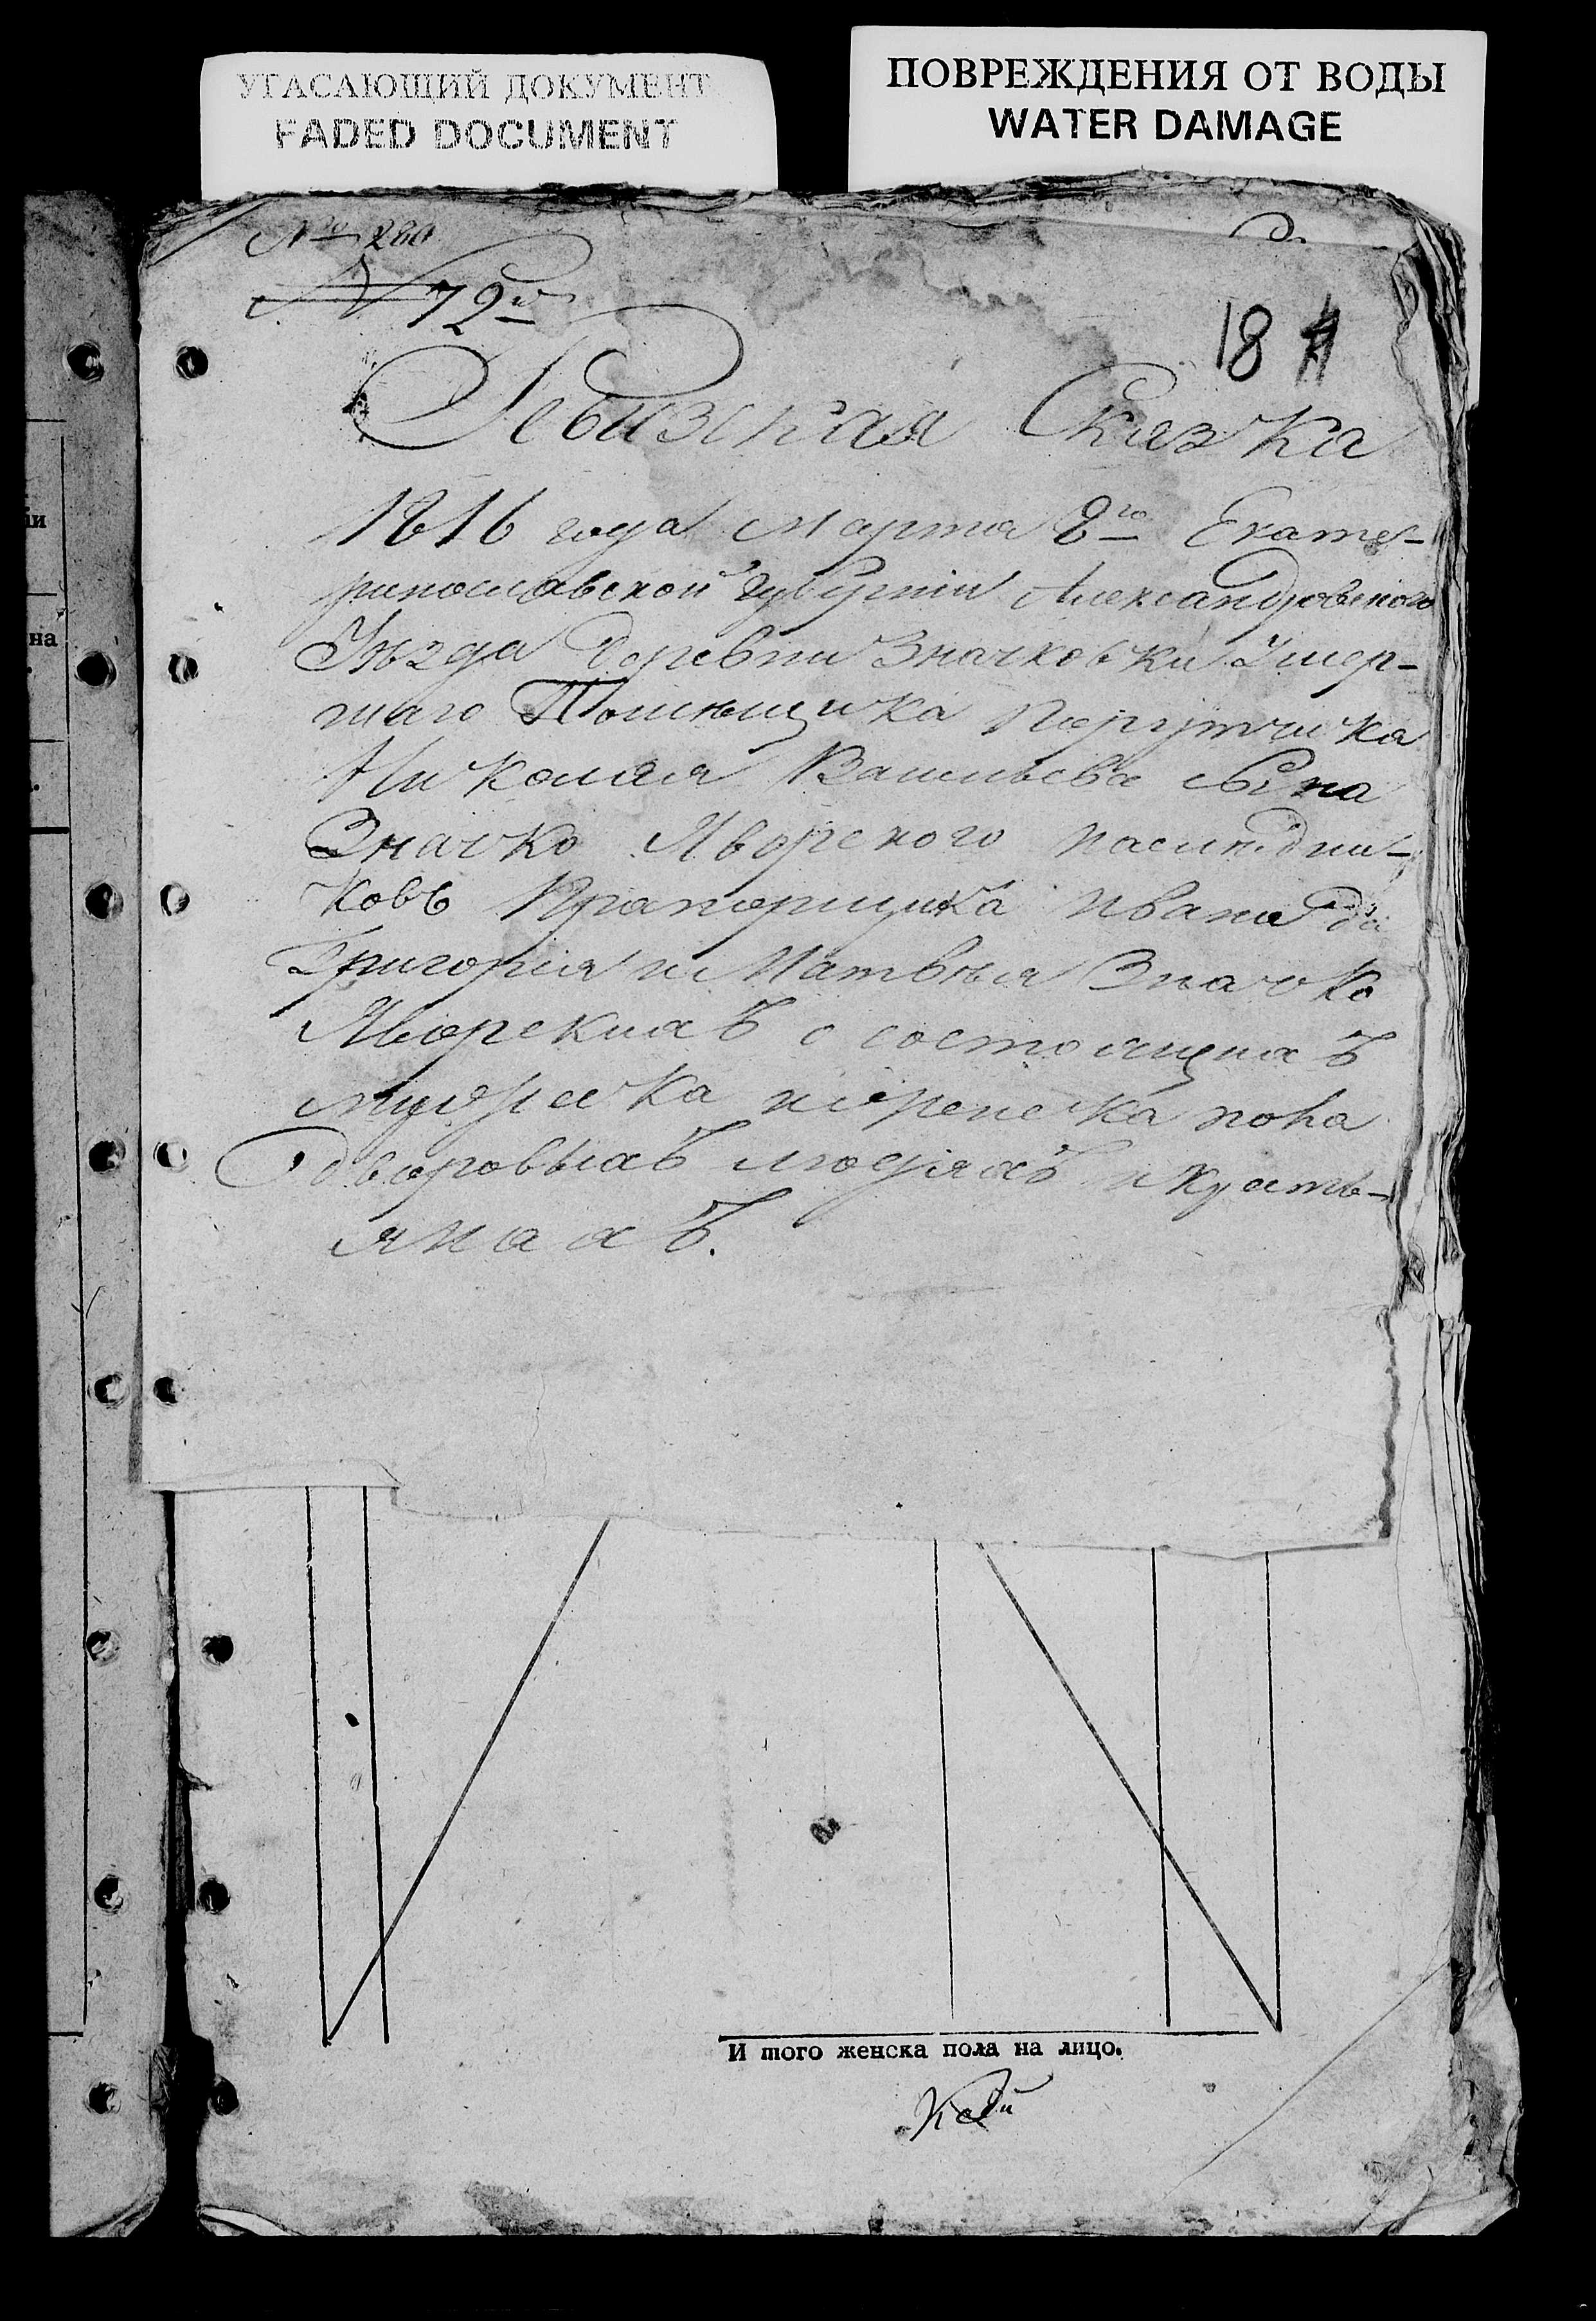 УГАСАЮЩИЙ ДОКУМЕНТ
FADED DOCUMENT
ПОВРЕЖДЕНИЯ ОТ ВОДЫ
WATER DAMAGE
№ 280
№ 72
18
Ревизская Сказка
1816 года Марта 8го Екате-
ринославской губернiи Александровского
Уѣзда деревни Значковки Умер-
шаго Помѣщика Порутчика
Николая Васильева сына
Значко Яворского наслѣдни-
ковъ Прапорщика Ивана да
Григорiя и Матвѣя Значко
Яворскихъ о состоящихъ
мужеска и женска пола
дворовыхъ людяхъ и крѣсть-
янахъ.
ии
на
И того женска пола на лицо.